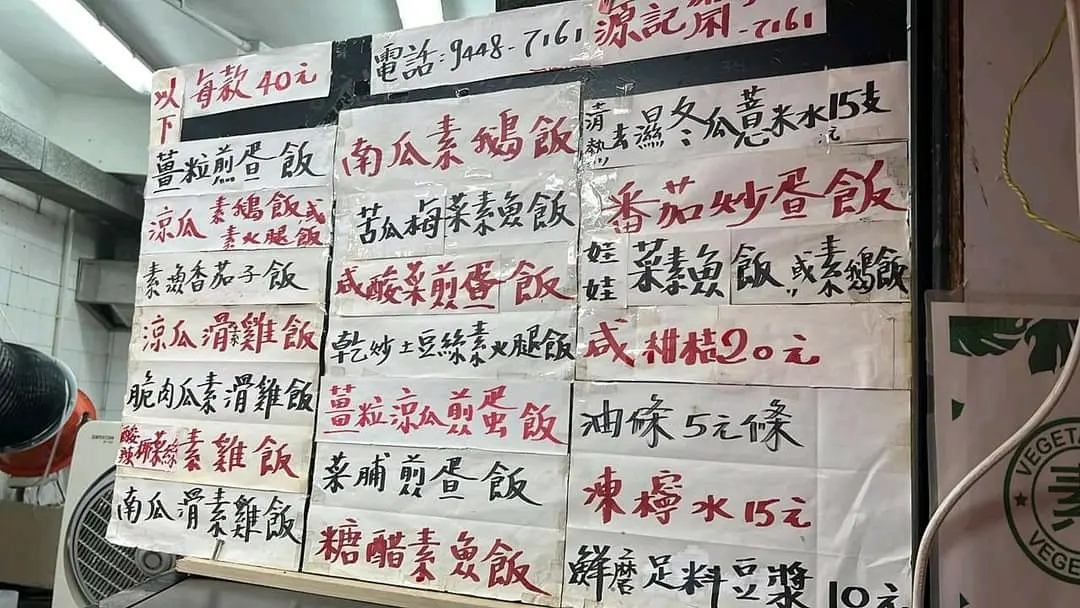 以下
每款40元
電話:9448-7161
源記
-7161
薑粒煎蛋飯
涼瓜素鵝飯或
素火腿飯
素魚香茄子飯
涼瓜滑素雞飯
脆肉瓜素滑雞飯
酸辣椰菜絲素雞飯
南瓜滑素雞飯
南瓜素鵝飯
苦瓜梅菜素魚飯
咸酸菜煎蛋飯
乾炒土豆絲素火腿飯
薑粒涼瓜煎蛋飯
菜脯煎蛋飯
糖醋素魚飯
清熱去濕冬瓜薏米水15元支
番茄炒蛋飯
娃娃菜素魚飯或素鵝飯
咸柑桔20元
油條5元條
凍檸水15元
鮮磨足料豆漿10元
VEGETA
VEGE